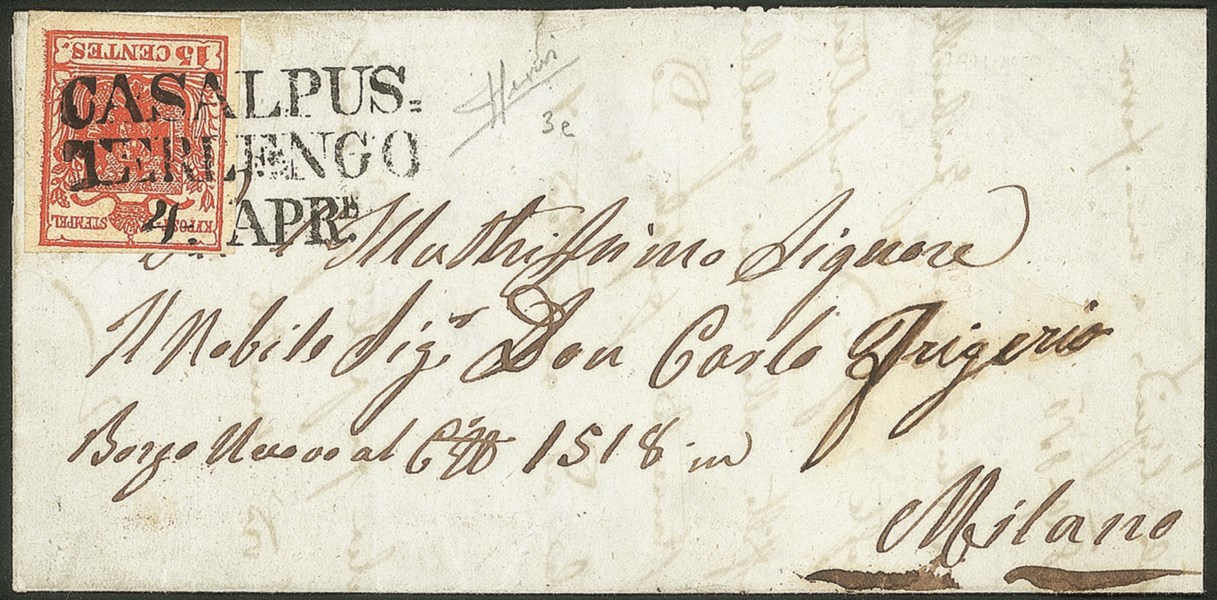 15 CENTES.
CASALPUS=
TERLENGO
4. APR.
STEMPEL
Illustrissimo Signore
Il Nobile Sig.r Don Carlo Frigerio
Borgo Nuovo al 1518 in
Milano
3e